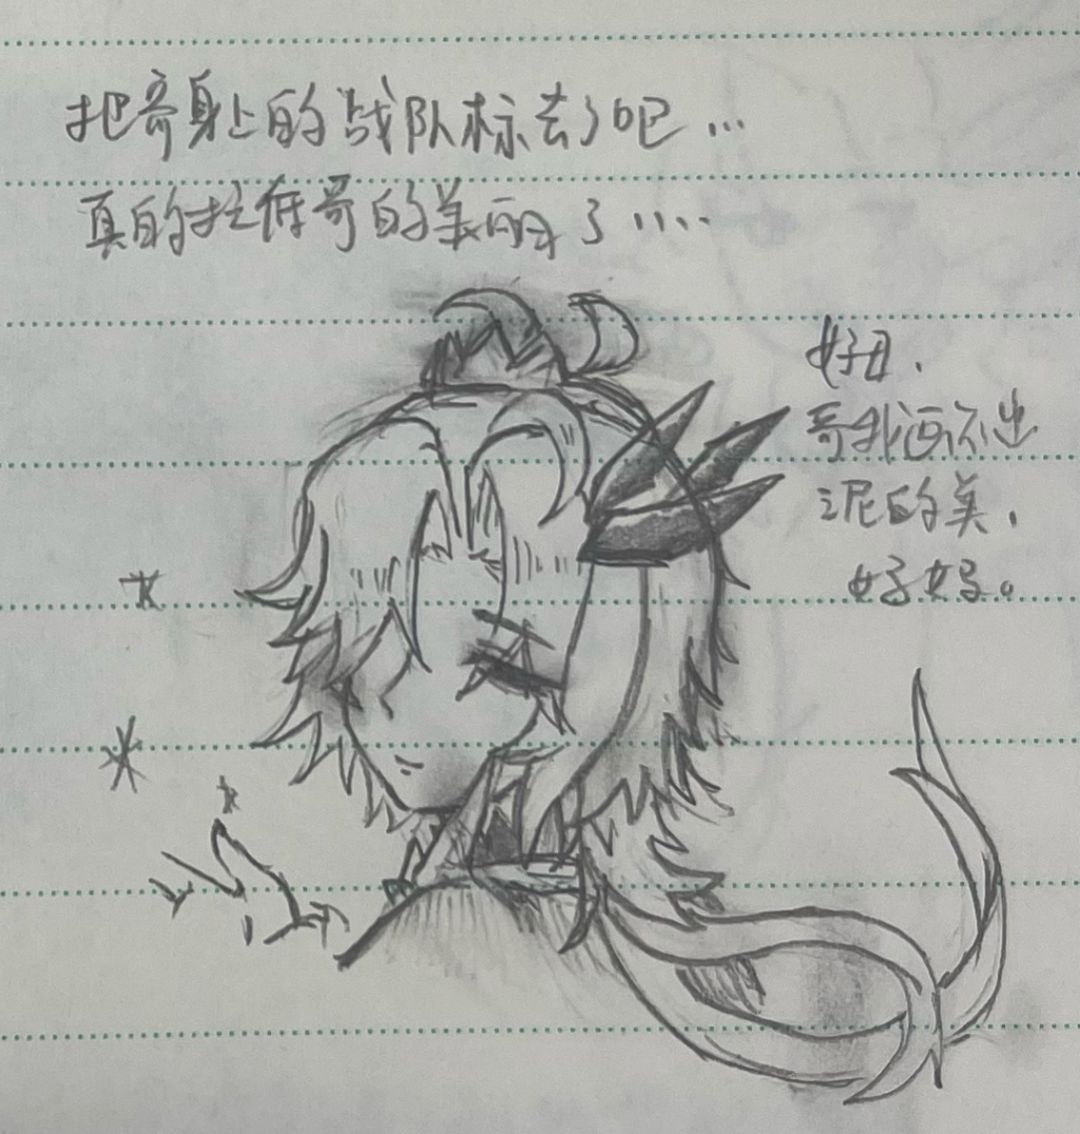 把哥身上的战队标去了吧...
真的拉低哥的美丽了....
好丑.
哥我画不出
泥的美.
好好。